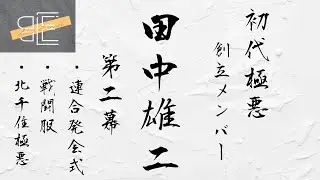 初代極悪
創立メンバー
田中雄二
第二幕
・連合発会式
・戦闘服
・北千住極悪